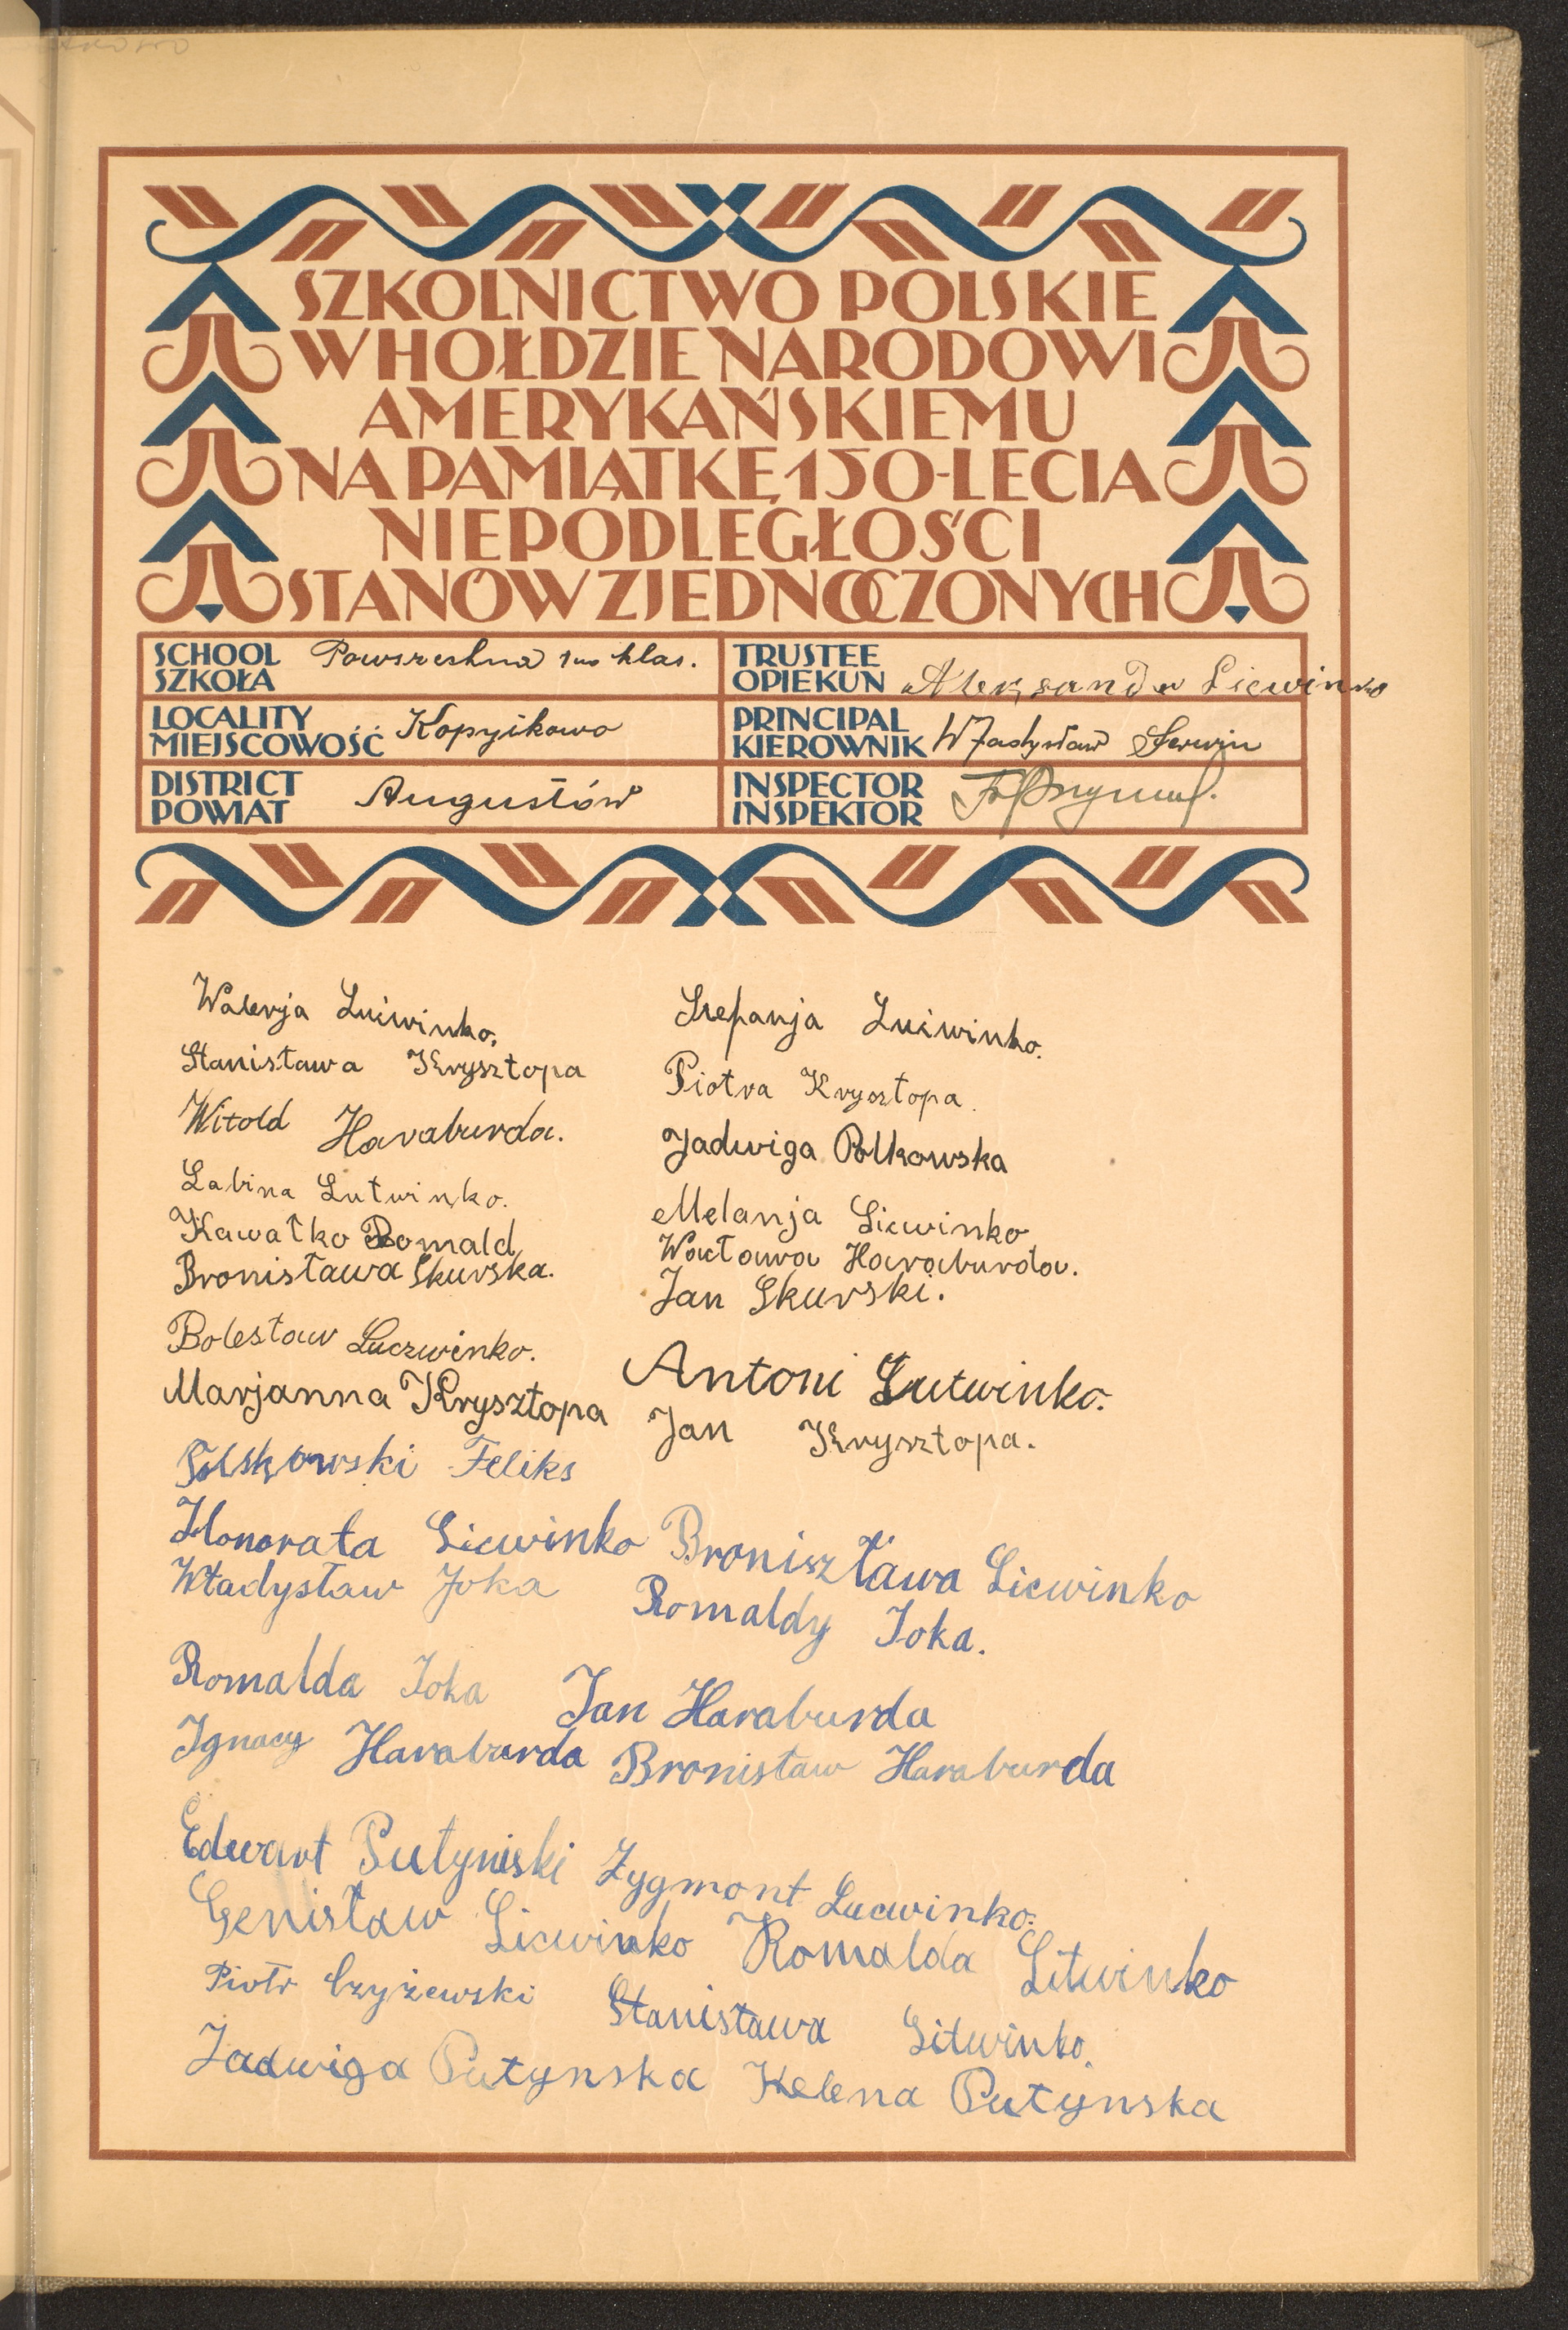 SZKOLNICTWO POLSKIE
W HOŁDZIE NARODOWI
AMERYKAŃSKIEMU
NA PAMIĄTKĘ 150-LECIA
NIEPODLEGŁOŚCI
STANÓW ZJEDNOCZONYCH
SCHOOL
SZKOŁA
Powszechna 1wo klas.
TRUSTEE
OPIEKUN
Aleksander Licwinko
LOCALITY
MIEJSCOWOŚĆ
Kopyikowo
PRINCIPAL
KIEROWNIK
Władysław Serwin
DISTRICT
POWIAT
Augustów
INSPECTOR
INSPEKTOR
Walerja Lućwinko,
Stefanja Lućwinko.
Stanisława Krysztopa
Piotra Krysztopa.
Witold Haraburda.
Jadwiga Polkowska
Sabina Lutwinko.
Melanja Licwinko
Kawałko Romald
Wacława Haraburda.
Bronisława Skurska.
Jan Skurski.
Bolesław Luczwinko.
Antoni Lutwinko.
Marjanna Krysztopa
Jan Krysztopa.
Feliks
Honorata Licwinko
Broniszława Licwinko
Władysław Joka
Romaldy Joka.
Romalda Joka
Jan Haraburda
Ignacy Haraburda
Bronisław Haraburda
Edwart Putyniski
Zygmont Lucwinko.
Genisław Licwinko
Romalda Litwinko
Piotr Czyżewski
Stanisława Litwinko.
Jadwiga Putynska
Helena Putynska